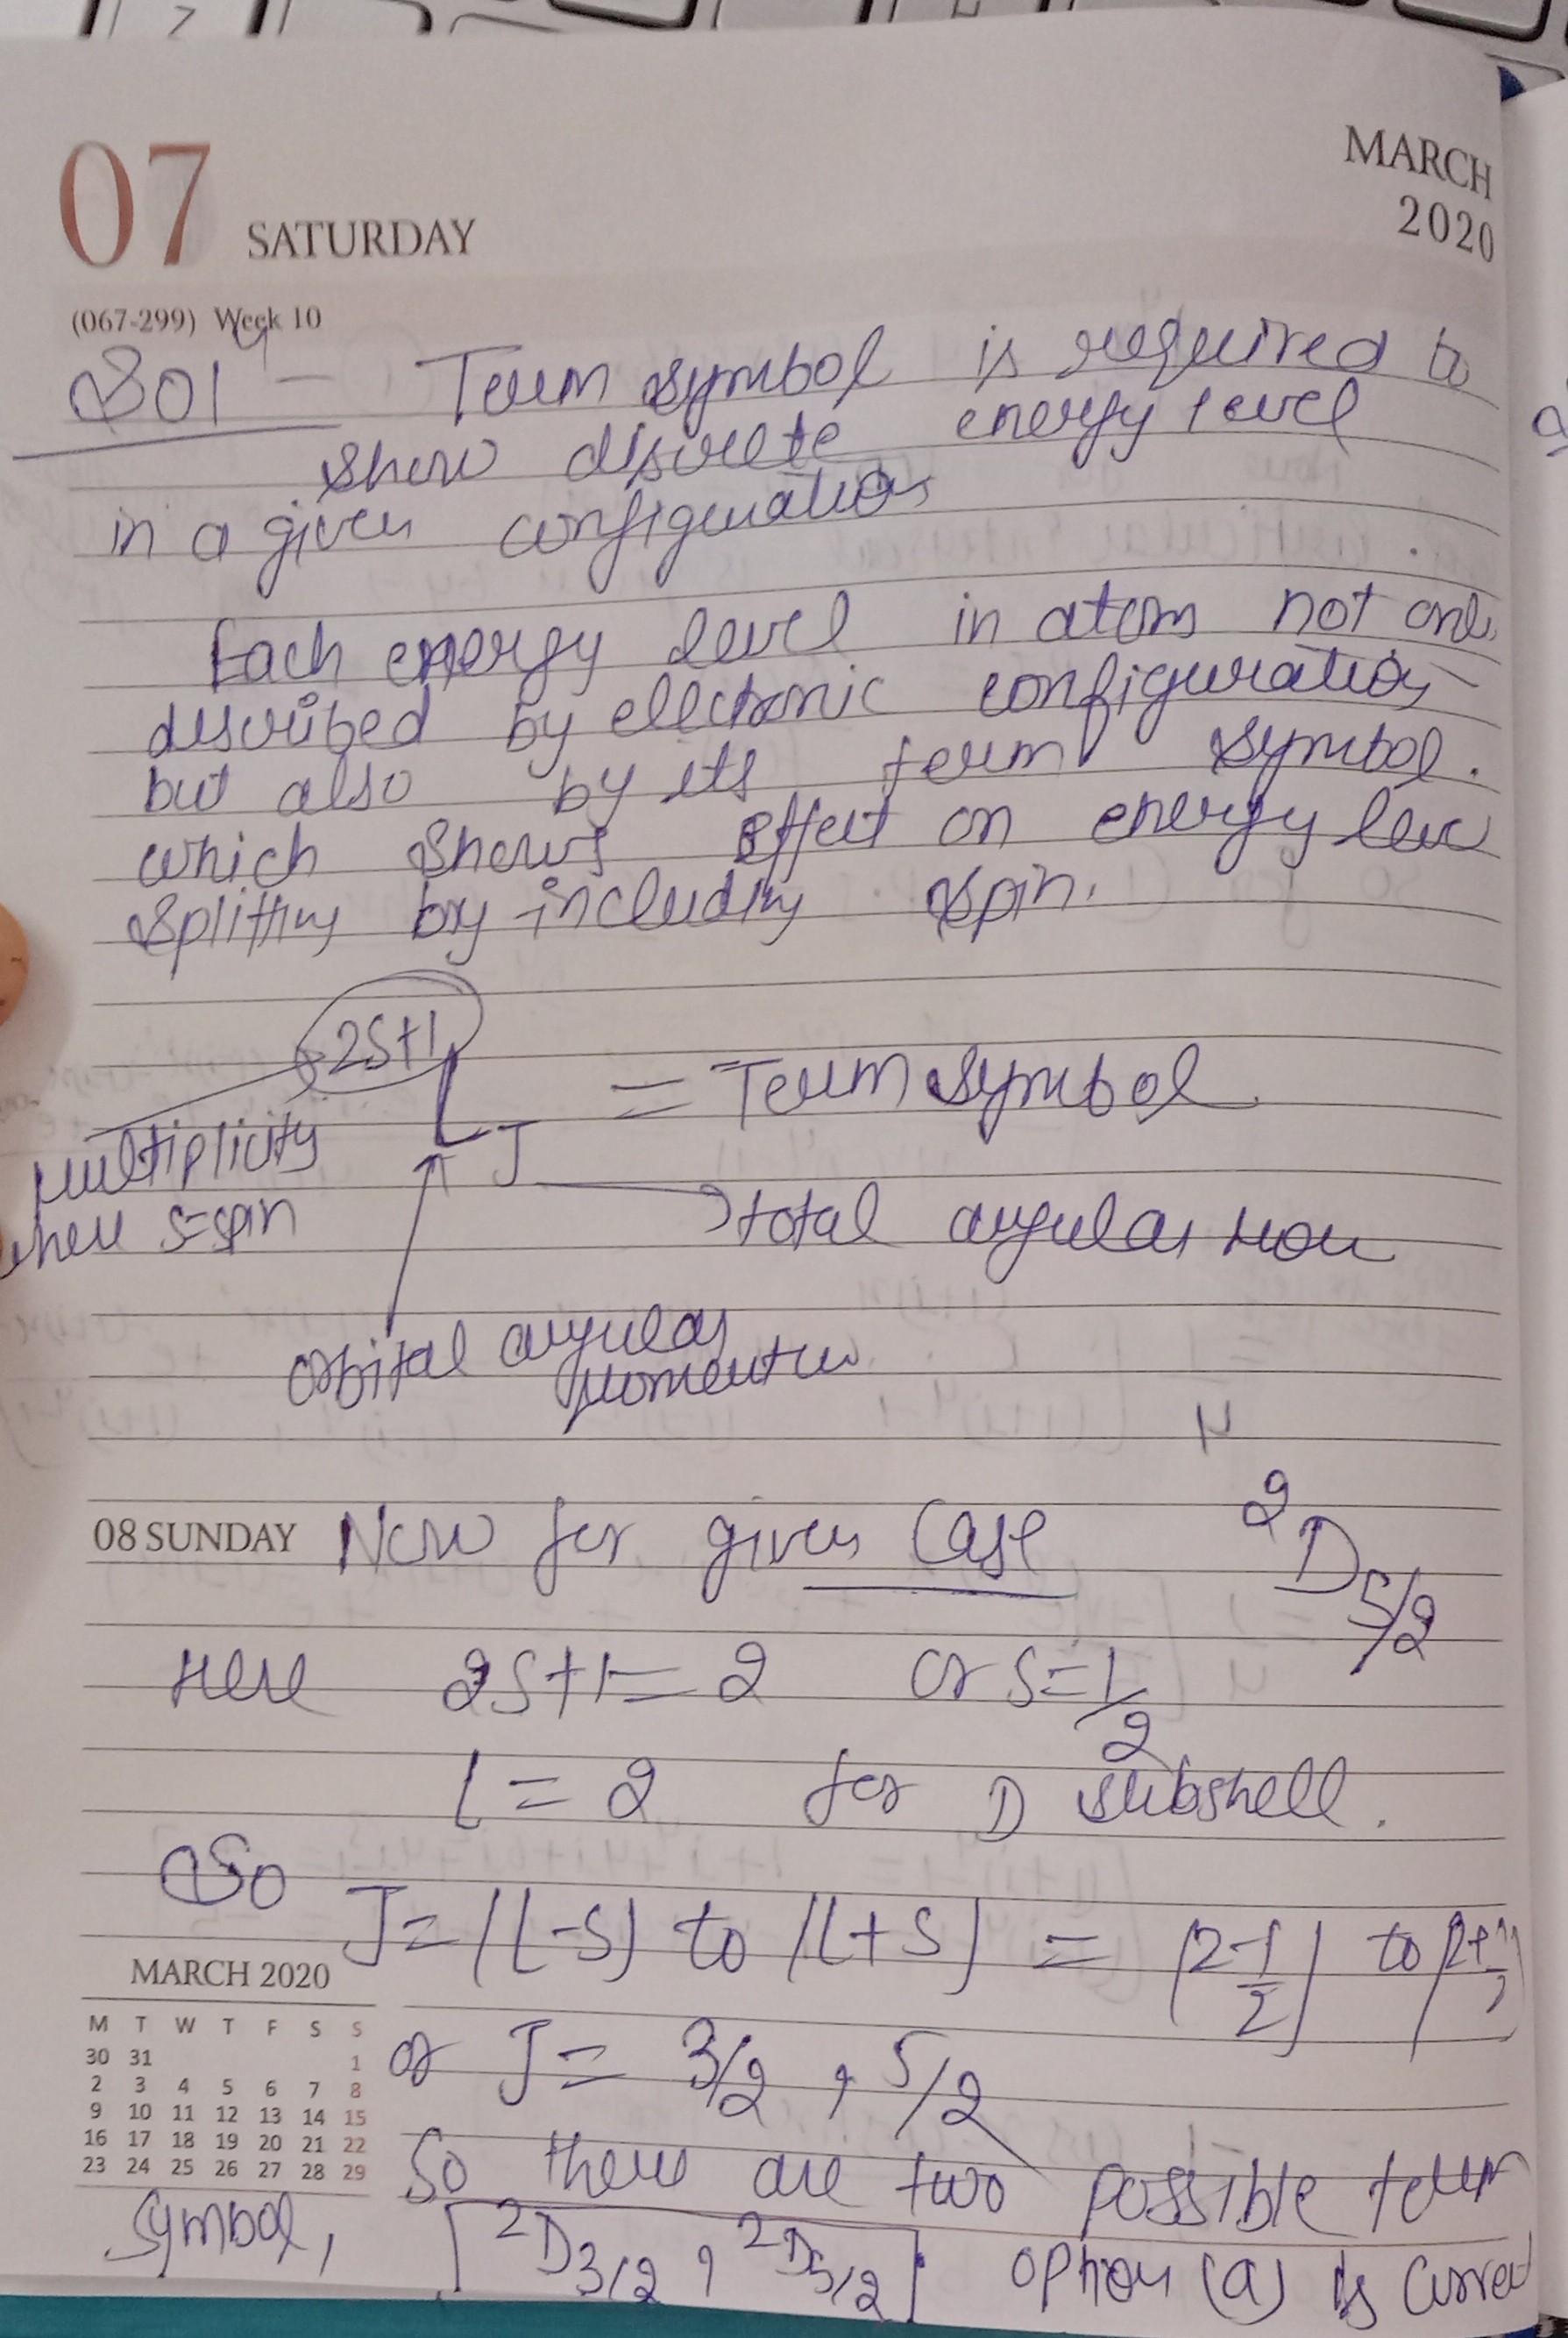 07 SATURDAY
MARCH
2020
(067-299) Week 10
Solⁿ - Term symbol is required to
show discrete energy level
in a given configuration
Each energy level in atom not only
described by electronic configuration
but also by its term symbol.
which shows effect on energy level
splitting by including spin.
2S+1
L J = Term symbol
Multiplicity
where S=spin
total angular mom
orbital angular
momentum
08 SUNDAY Now for given case ²D5/2
Here 2S+1=2 or S=1/2
L=2 for D subshell.
So J=|L-S| to |L+S| = |2-1/2| to |2+1/2|
or J= 3/2, 5/2
MARCH 2020
M T W T F S S
30 31 1
2 3 4 5 6 7 8
9 10 11 12 13 14 15
16 17 18 19 20 21 22
23 24 25 26 27 28 29
So there are two possible term
symbol, [²D3/2, ²D5/2] option (a) is correct